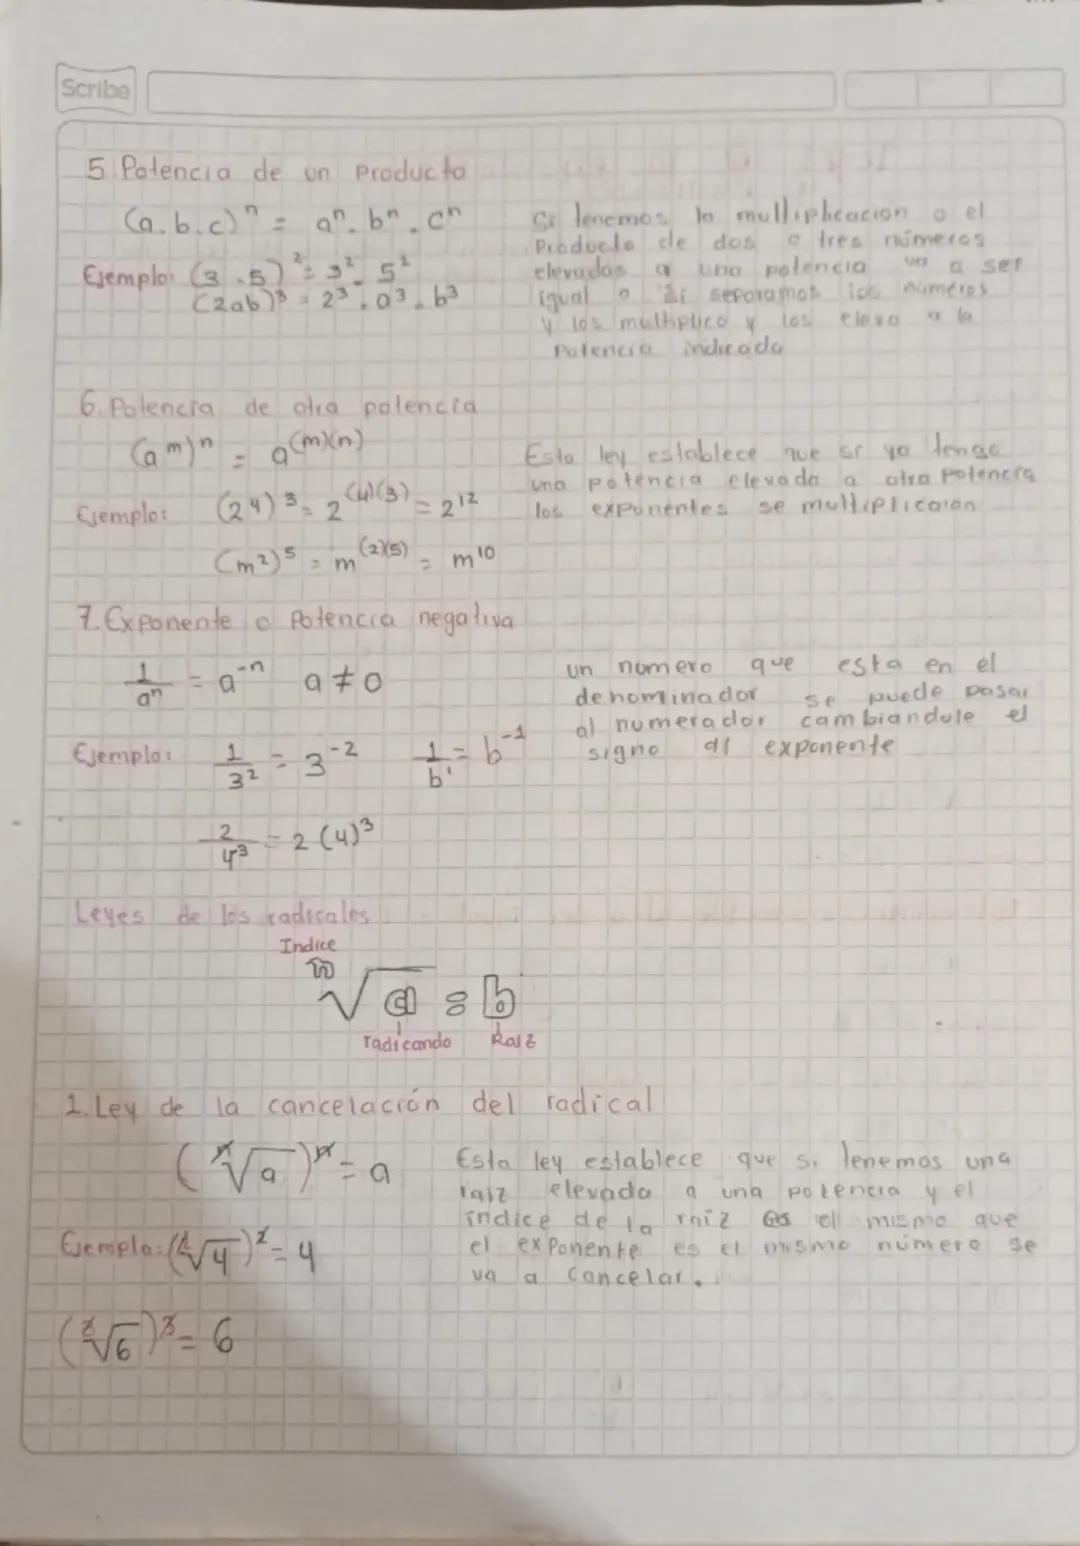 Scribe
5. Potencia de un Producto
(a.b.c)ⁿ = aⁿ . bⁿ . cⁿ
Si tenemos la multiplicación o el
Producto de dos o tres números
Ejemplo: (3 . 5)² = 3² . 5²
elevados a una potencia va a ser
(2ab)³ = 2³ . a³ . b³
igual a si separamos los números
y los multiplico y los elevo a la
Potencia indicada
6. Potencia de otra potencia
(aᵐ)ⁿ = a^(m)(n)
Esta ley establece que si yo tengo
una potencia elevada a otra potencia
Ejemplo: (2⁴)³ = 2^(4)(3) = 2¹²
los exponentes se multiplicaran
(m²)⁵ = m^(2)(5) = m¹⁰
7. Exponente o Potencia negativa
1/aⁿ = a⁻ⁿ a ≠ 0
un numero que esta en el
denominador se puede pasar
al numerador cambiandole el
Ejemplo: 1/3² = 3⁻² 1/b¹ = b⁻¹
signo al exponente
2/4³ = 2(4)³
Leyes de los radicales
Indice
ⁿ√a = b
radicando Raiz
1. Ley de la cancelación del radical
(ⁿ√a)ⁿ = a
Esta ley establece que si tenemos una
raiz elevada a una potencia y el
indice de la raiz es el mismo que
Ejemplo: (²√4)² = 4
el exponente es el mismo número se
va a cancelar.
(³√6)³ = 6